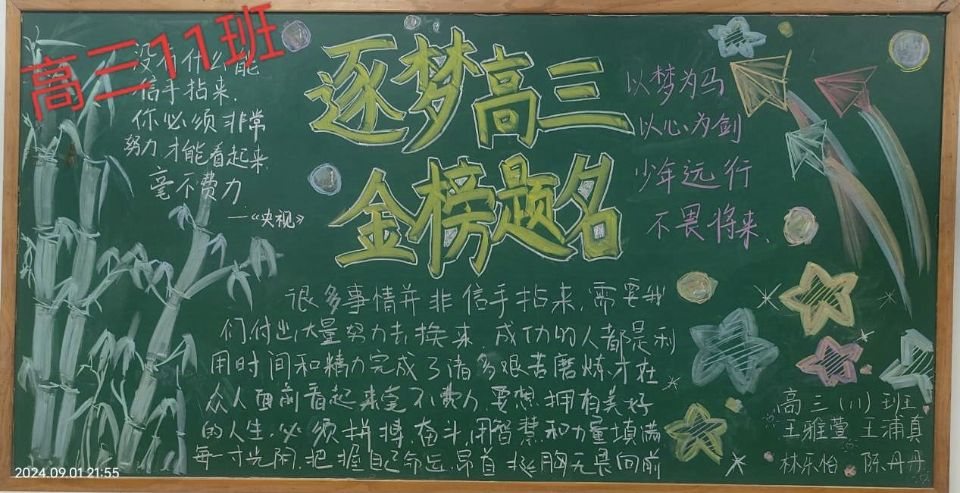 高三11班
没有什么能
信手拈来.
你必须非常
努力才能看起来
毫不费力
—《央视》
逐梦高三
金榜题名
以梦为马
以心为剑
少年远行
不畏将来、
很多事情并非信手拈来,需要我
们付出大量努力去换来,成功的人都是利
用时间和精力完成了诸多艰苦磨炼,才在
众人面前看起来毫不费力,要想拥有美好
的人生,必须拼搏、奋斗,用智慧和力量填满
每一寸光阴,把握自己命运,昂首挺胸无畏向前
高三(11)班
王雅萱 王浦真
林乐怡 陈丹丹
2024.09.01 21:55